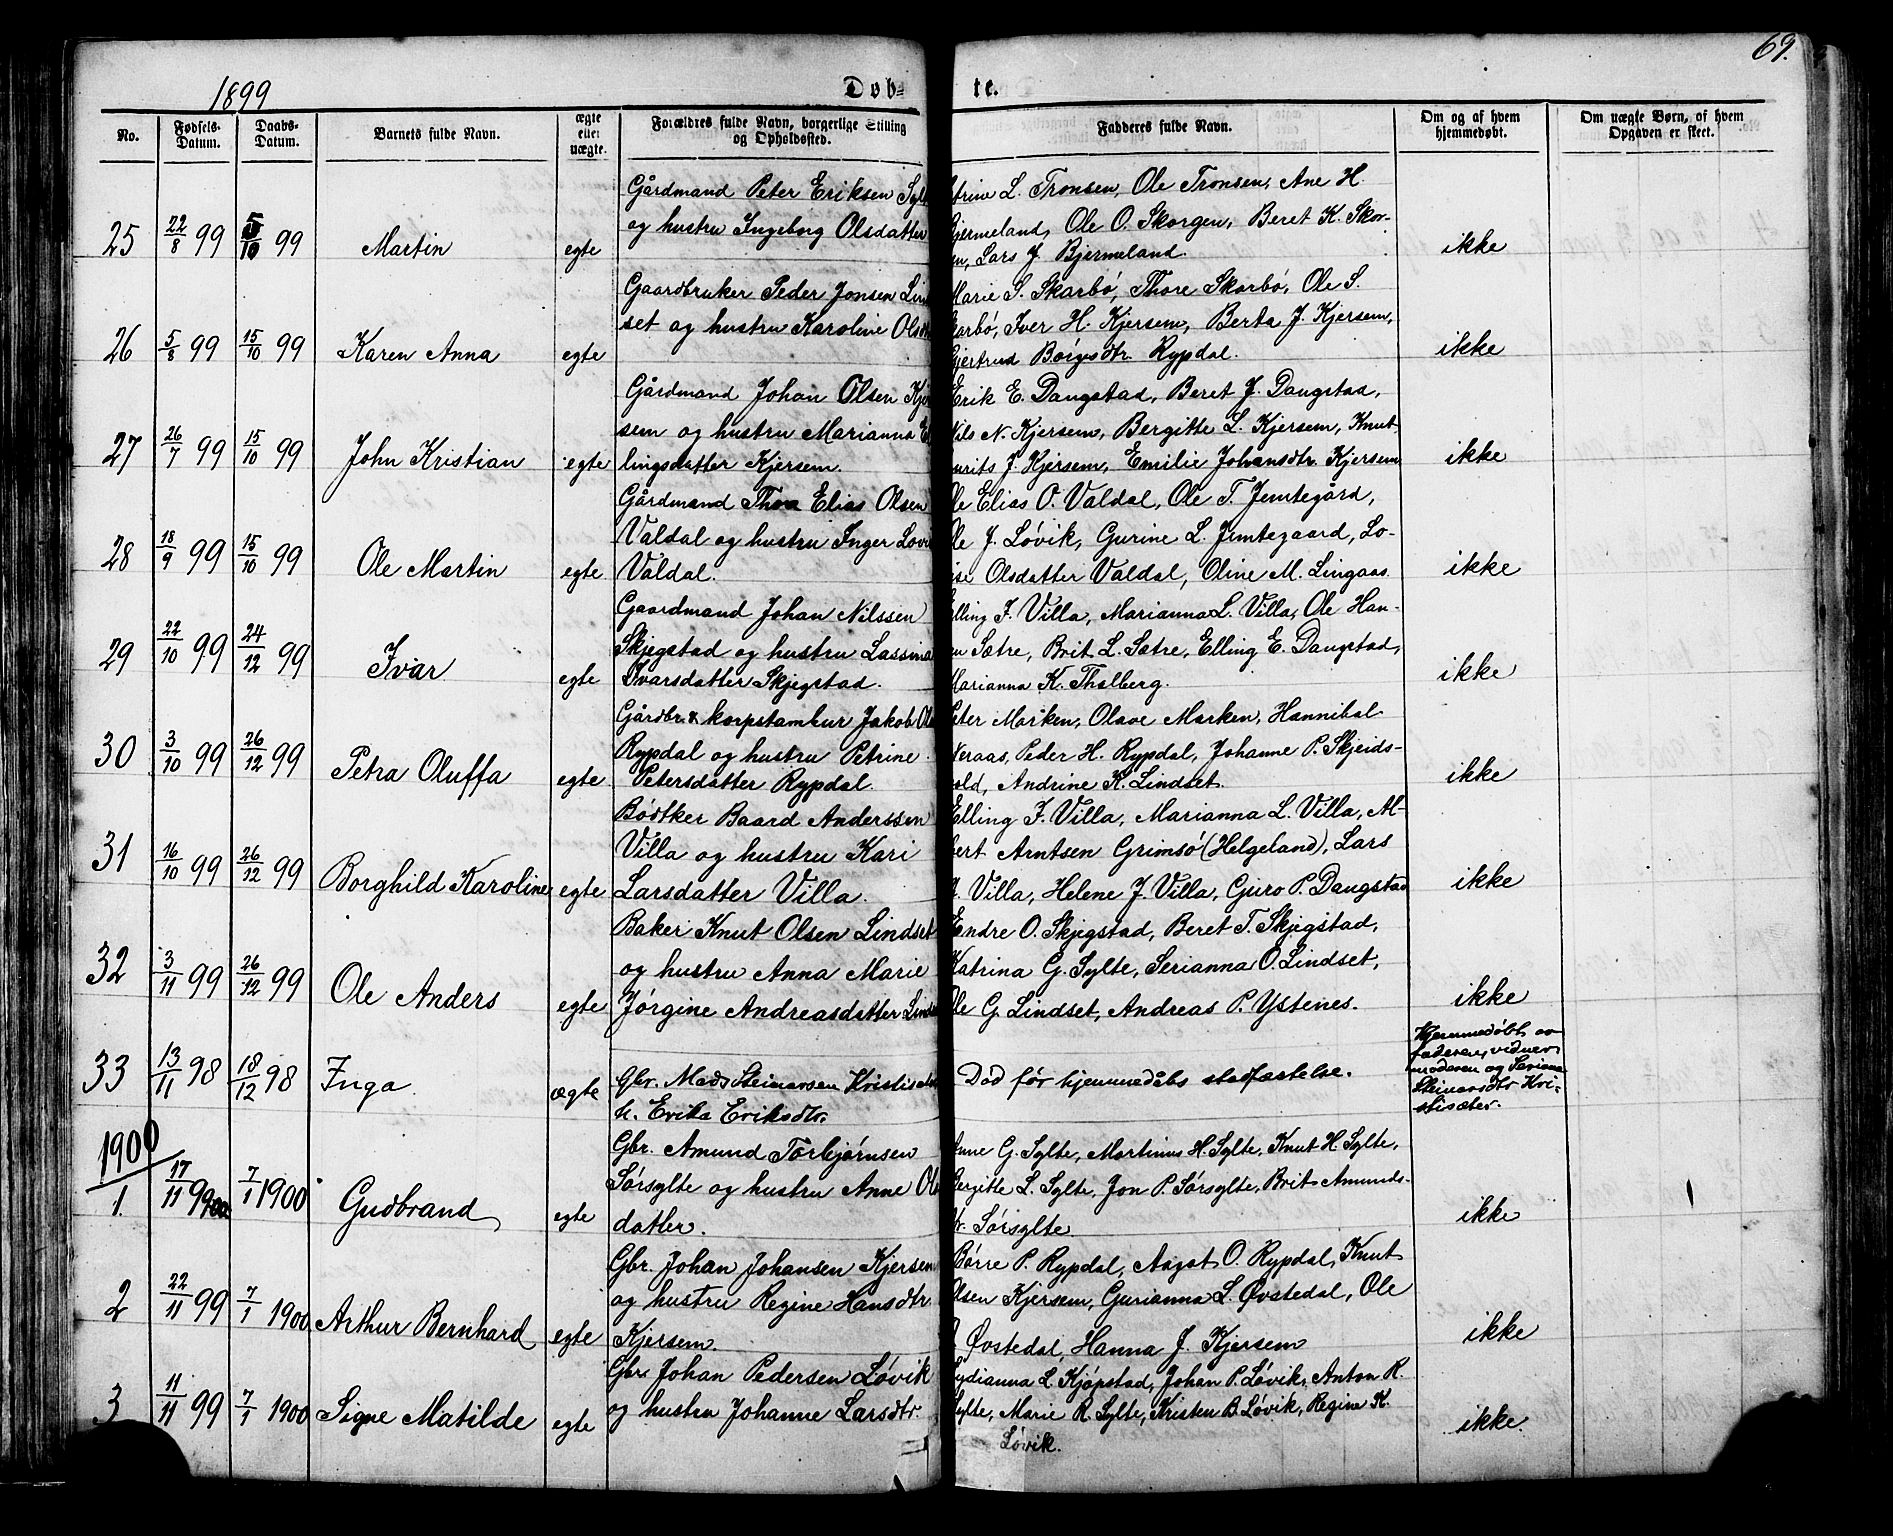 69.
1899
Døb-
te.
No.
Fødsels-Datum.
Daabs-Datum.
Barnets fulde Navn.
ægte eller uægte.
Forældres fulde Navn, borgerlige Stilling og Opholdssted.
Fadderes fulde Navn.
Om og af hvem hjemmedøbt.
Om uægte Børn, af hvem Opgaven er skeet.
Gårdmand Peter Eriksen Syl
og hustru Ingeborg Olsdatter
25 22/8 99 5/10 99 Martin egte
trine L. Tronsen, Ole Tronsen, Ane H.
jermeland, Ole O. Skorgen, Beret K. Skor-
en, Lars J. Bjermeland.
ikke
Gaardbruker Peder Jonsen Lind
set og hustru Karoline Olsd
26 5/8 99 15/10 99 Karen Anna egte
Marie S. Skarbö, Thore Skarbö, Ole S.
karbö, Iver H. Kjersem, Berta J. Kjersem,
Gjertrud Börgesdtr. Rypdal.
ikke
Gårdmand Johan Olsen Kjer
sem og hustru Marianna El
27 26/7 99 15/10 99 John Kristian egte lingsdatter Kjersem.
Erik E. Daugstad, Beret J. Daugstad,
Nils N. Kjersem, Bergitte L. Kjersem, Knut
Lurits J. Kjersem, Emilie Johansdtr. Kjersem
ikke
Gårdmand Thor Elias Olsen
Valdal og hustru Inger Lovi
28 18/9 99 15/10 99 Ole Martin egte Valdal.
Ole Elias O. Valdal, Ole T. Jemtegård,
Ole J. Løvik, Gurine L. Jemtegaard, Lo-
ise Olsdatter Valdal, Oline M. Lingaas.
ikke
Gaardmand Johan Nilssen
Skjegstad og hustru Lassina
29 22/10 99 24/12 99 Ivar egte Ivarsdatter Skjegstad.
Elling J. Villa, Marianna L. Villa, Ole Han-
en Sætre, Brit L. Sætre, Elling E. Daugstad,
Marianna K. Thalberg.
ikke
Gårdbr. & korpstambur Jakob Ols
Rypdal og hustru Petrine
30 3/10 99 26/12 99 Petra Oluffa egte Petersdatter Rypdal.
Peter Marken, Olave Marken, Hannibal
Neraas, Peder H. Rypdal, Johanne P. Skjeids-
vold, Andrine K. Lindset.
ikke
Bødtker Baard Anderssen
Villa og hustru Kari
31 16/10 99 26/12 99 Borghild Karoline egte Larsdatter Villa.
Elling J. Villa, Marianna L. Villa, Al-
bert Arntsen Grimsö (Helgeland), Lars
Villa, Helene J. Villa, Guro P. Daugstad
ikke
Baker Knut Olsen Lindset
og hustru Anna Marie
32 3/11 99 26/12 99 Ole Anders egte Jørgine Andreasdatter Linds
Endre O. Skjegstad, Beret T. Skjegstad,
Katrina G. Sylte, Serianna O. Lindset,
Ole G. Lindset, Andreas P. Ystenes.
ikke
33 13/11 98 18/12 98 Inga ægte Gbr. Mads Steinarsen Kristisæt
h. Erika Eriksdtr.
Död før hjemmedåbs stadfæstelse.
Hjemmedöbt av
faderen, vidner
moderen og Seriana
Steinarsdtr Kri-
stisæter.
1900
Gbr. Amund Torbjørnsen
Sørsylte og hustru Anne Ols
1. 17/11 99 7/1 1900 Gudbrand egte datter.
Anne G. Sylte, Martinus H. Sylte, Knut H. Sylte,
Bergitte L. Sylte, Jon P. Sørsylte, Brit Amunds-
tr. Sørsylte
ikke
Gbr. Johan Johansen Kjersem
og hustru Regine Hansdtr
2 22/11 99 7/1 1900 Arthur Bernhard egte Kjersem.
Børre P. Rypdal, Aagot O. Rypdal, Knut
Olsen Kjersem, Gurianna L. Øvstedal, Ole
Øvstedal, Hanna J. Kjersem
ikke
Gbr Johan Pedersen Løvik
3 11/11 99 7/1 1900 Signe Matilde egte og hustru Johanne Larsdtr.
Lydianna L. Kjöpstad, Johan P. Løvik, Anton R.
Sylte, Marie R. Sylte, Kristen B. Løvik, Regine K.
Løvik.
ikke.